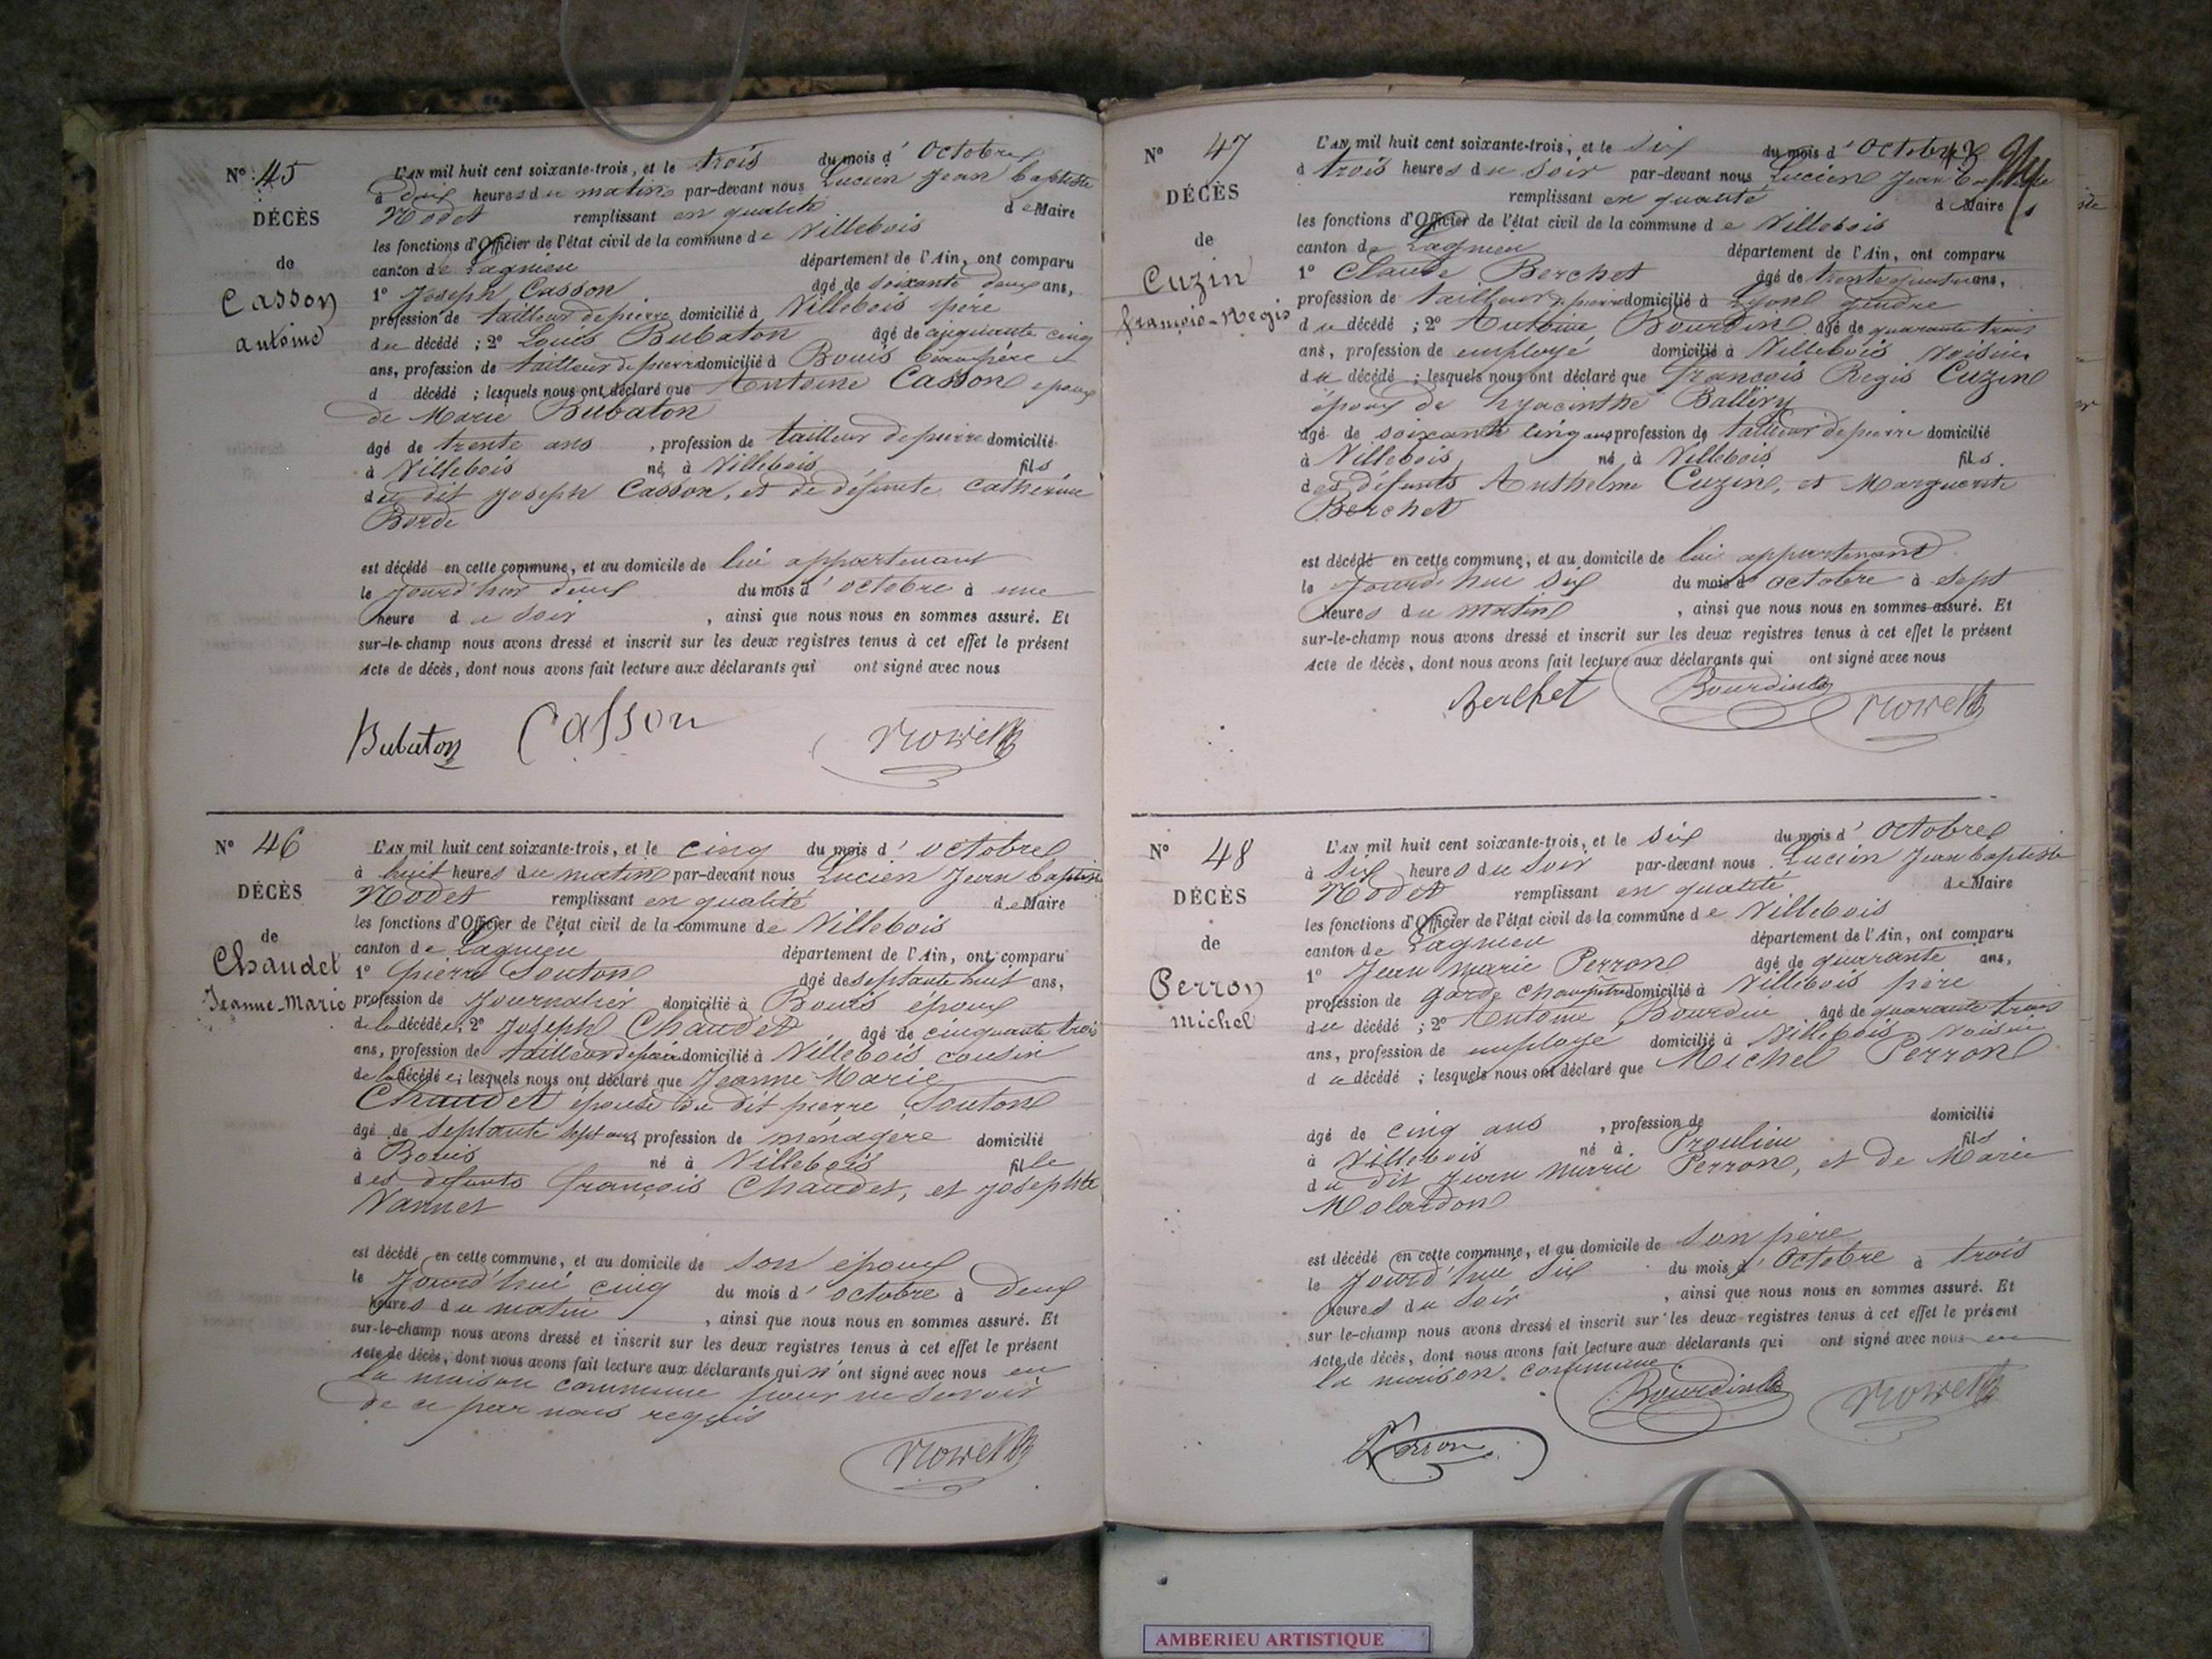 N° 45
DÉCÈS
de
Casson
antoine
L'AN mil huit cent soixante-trois, et le trois du mois d'Octobre
à dix heures du matin par-devant nous Lucien Jean baptiste
Nodet remplissant en qualité de Maire
les fonctions d'Officier de l'état civil de la commune de Villebois
canton de Lagnieu département de l'Ain, ont comparu
1° Joseph Casson âgé de soixante deux ans,
profession de tailleur de pierre domicilié à Villebois père
du décédé ; 2° Louis Bubaton âgé de cinquante cinq
ans, profession de tailleur de pierre domicilié à Bouis beau père
d décédé ; lesquels nous ont déclaré que Antoine Casson epoux
de Marie Bubaton
âgé de trente ans , profession de tailleur de pierre domicilié
à Villebois né à Villebois fils
du dit Joseph Casson, et de défunte Catherine
Borde
est décédé en cette commune, et au domicile de lui appartenant
le jourd'hui deux du mois d'octobre à une
heure du soir , ainsi que nous nous en sommes assuré. Et
sur-le-champ nous avons dressé et inscrit sur les deux registres tenus à cet effet le présent
Acte de décès, dont nous avons fait lecture aux déclarants qui ont signé avec nous
Bubaton Casson
N° 46
DÉCÈS
de
Chaudet
Jeanne-Marie
L'AN mil huit cent soixante-trois, et le cinq du mois d'octobre
à huit heures du matin par-devant nous Lucien Jean baptiste
Nodet remplissant en qualité de Maire
les fonctions d'Officier de l'état civil de la commune de Villebois
canton de Lagnieu département de l'Ain, ont comparu
1° pierre Souton âgé de septante huit ans,
profession de Journalier domicilié à Bouis époux
de la décédée; 2° Joseph Chaudet âgé de cinquante trois
ans, profession de tailleur de pierre domicilié à Villebois cousin
de la décédée; lesquels nous ont déclaré que Jeanne-Marie
Chaudet épouse du dit pierre Souton
âgé de septante sept ans, profession de ménagère domicilié
à Bouis né à Villebois fille
des défunts françois Chaudet, et josephte
Vannet
est décédé en cette commune, et au domicile de son époux
le Jourd'hui cinq du mois d'octobre à Deux
heures du matin , ainsi que nous nous en sommes assuré. Et
sur-le-champ nous avons dressé et inscrit sur les deux registres tenus à cet effet le présent
Acte de décès, dont nous avons fait lecture aux déclarants qui n'ont signé avec nous en
la maison commune pour ne savoir
de ce par nous requis
N° 47
DÉCÈS
de
Cuzin
françois-Régis
L'AN mil huit cent soixante-trois, et le six du mois d'Octobre
à trois heures du soir par-devant nous Lucien Jean baptiste
remplissant en qualité d Maire
les fonctions d'Officier de l'état civil de la commune de Villebois
canton de Lagnieu département de l'Ain, ont comparu
1° Claude Berchet âgé de trente quatre ans,
profession de tailleur de pierre domicilié à Lyon gendre
du décédé ; 2° Antoine Bourdin âgé de quarante trois
ans, profession de employé domicilié à Villebois voisin
du décédé ; lesquels nous ont déclaré que François Régis Cuzin
époux de hyacinthe Ballery
âgé de soixante cinq ans profession de tailleur de pierre domicilié
à Villebois né à Villebois fils
des défunts Anthelme Cuzin, et Marguerite
Berchet
est décédé en cette commune, et au domicile de lui appartenant
le Jourd'hui six du mois d'octobre à sept
heures du matin , ainsi que nous nous en sommes assuré. Et
sur-le-champ nous avons dressé et inscrit sur les deux registres tenus à cet effet le présent
Acte de décès, dont nous avons fait lecture aux déclarants qui ont signé avec nous
Berchet Bourdin
N° 48
DÉCÈS
de
Perron
michel
L'AN mil huit cent soixante-trois, et le six du mois d'Octobre
à six heures du soir par-devant nous Lucien Jean baptiste
Nodet remplissant en qualité de Maire
les fonctions d'Officier de l'état civil de la commune de Villebois
canton de Lagnieu département de l'Ain, ont comparu
1° Jean marie Perron âgé de quarante ans,
profession de garde champêtre domicilié à Villebois père
du décédé ; 2° Antoine Bourdin âgé de quarante trois
ans, profession de employé domicilié à Villebois voisin
du décédé ; lesquels nous ont déclaré que Michel Perron
âgé de cinq ans , profession de domicilié
à Villebois né à Proulieu fils
du dit Jean marie Perron, et de Marie
Molardon
est décédé en cette commune, et au domicile de son père
le Jourd'hui six du mois d'Octobre à trois
heures du soir , ainsi que nous nous en sommes assuré. Et
sur le-champ nous avons dressé et inscrit sur les deux registres tenus à cet effet le présent
Acte de décès, dont nous avons fait lecture aux déclarants qui ont signé avec nous en
la maison commune
Bourdin
Perron
AMBERIEU ARTISTIQUE